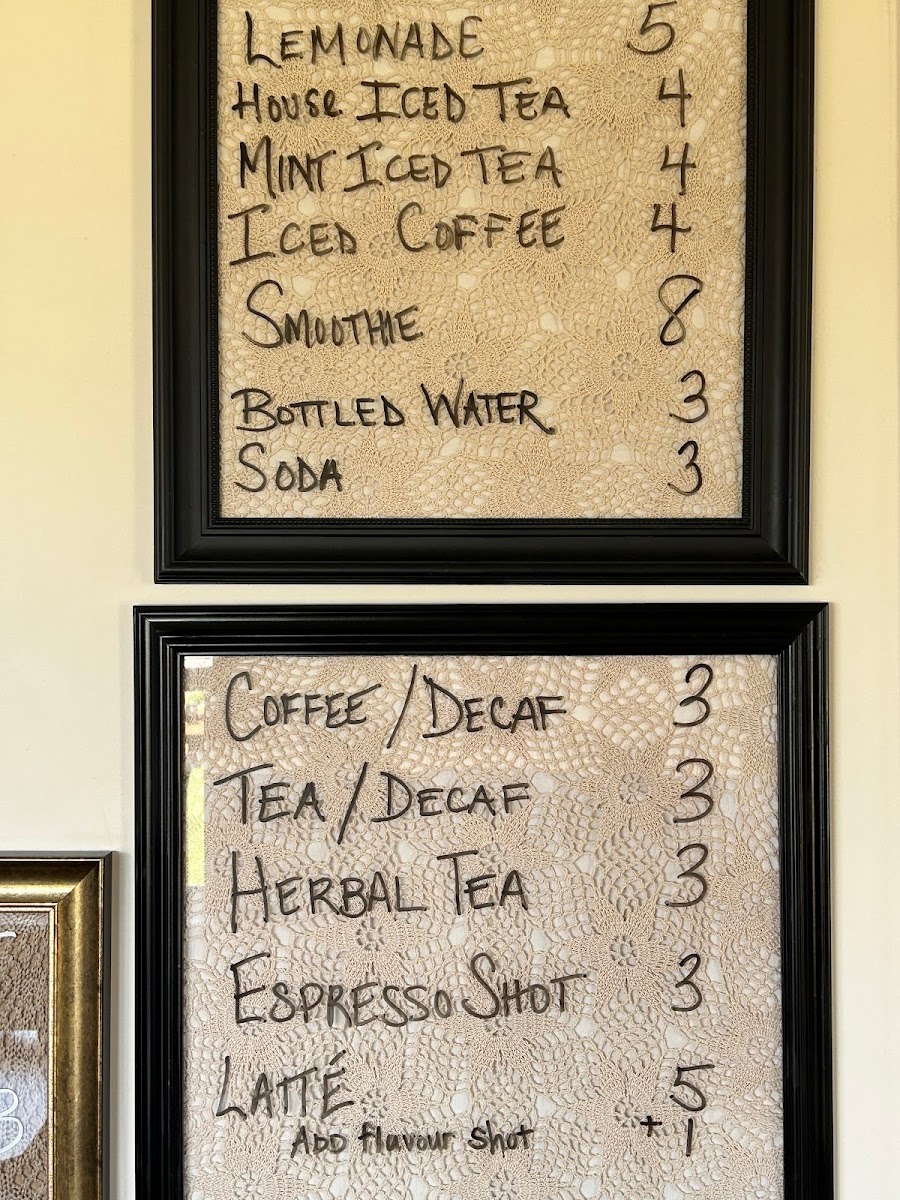 LEMONADE 5
HOUSE ICED TEA 4
MINT ICED TEA 4
ICED COFFEE 4
SMOOTHIE 8
BOTTLED WATER 3
SODA 3
COFFEE / DECAF 3
TEA / DECAF 3
HERBAL TEA 3
ESPRESSO SHOT 3
LATTÉ 5
ADD flavour shot + 1